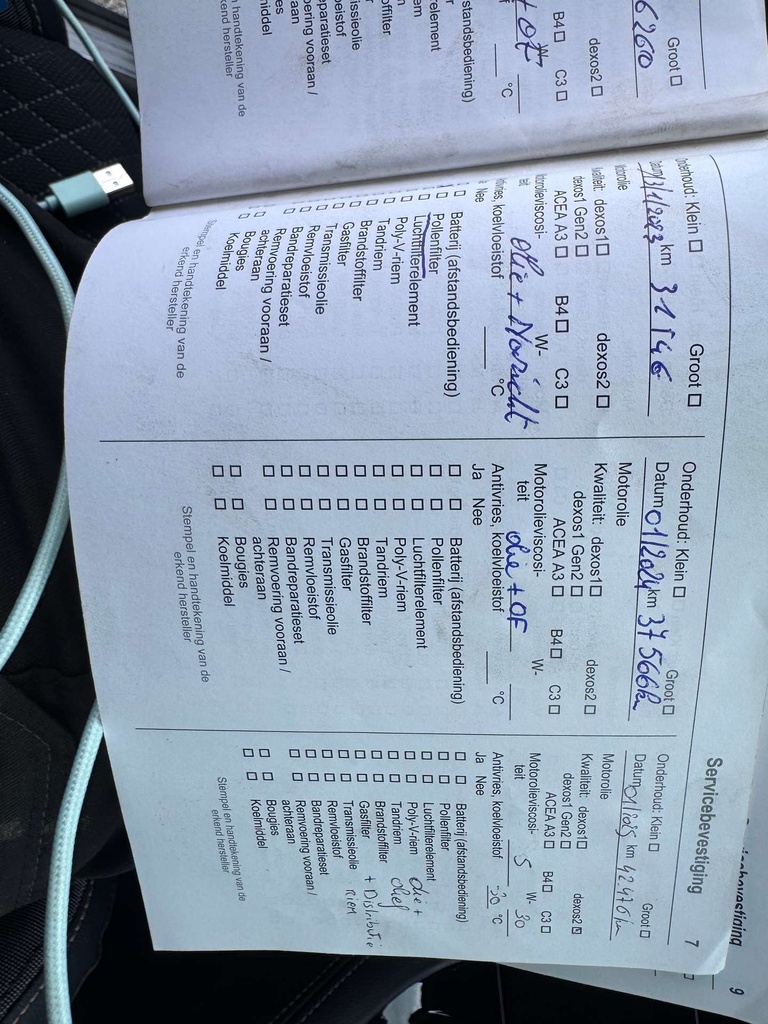 Groot ☐
6260
dexos2 ☐
B4 ☐ C3 ☐
°C
standsbediening)
element
offilter
missieolie
oeistof
eparatieset
oering vooraan /
aan
es
middel
n handtekening van de
kend hersteller
Onderhoud: Klein ☐ Groot ☐
km 31546
Kwaliteit: dexos1 ☐ dexos2 ☐
dexos1 Gen2 ☐
ACEA A3 ☐ B4 ☐ C3 ☐
W-
koelvloeistof °C
Nee
☐ Batterij (afstandsbediening)
☐ Pollenfilter
☐ Luchtfilterelement
☐ Poly-V-riem
☐ Tandriem
☐ Brandstoffilter
☐ Gasfilter
☐ Transmissieolie
☐ Remvloeistof
☐ Bandreparatieset
☐ Remvoering vooraan /
achteraan
☐ Bougies
☐ Koelmiddel
Stempel en handtekening van de
erkend hersteller
Servicebevestiging 7
Onderhoud: Klein ☐ Groot ☐
Datum 01/2024 km 37566km
Motorolie
Kwaliteit: dexos1 ☐ dexos2 ☐
dexos1 Gen2 ☐
ACEA A3 ☐ B4 ☐ C3 ☐
Motorolieviscosi- W-
teit olie + OF
Antivries, koelvloeistof °C
Ja Nee
☐ ☐ Batterij (afstandsbediening)
☐ ☐ Pollenfilter
☐ ☐ Luchtfilterelement
☐ ☐ Poly-V-riem
☐ ☐ Tandriem
☐ ☐ Brandstoffilter
☐ ☐ Gasfilter
☐ ☐ Transmissieolie
☐ ☐ Remvloeistof
☐ ☐ Bandreparatieset
☐ ☐ Remvoering vooraan /
achteraan
☐ ☐ Bougies
☐ ☐ Koelmiddel
Stempel en handtekening van de
erkend hersteller
Onderhoud: Klein ☐ Groot ☐
Datum 01/2025 km 42476km
Motorolie
Kwaliteit: dexos1 ☐ dexos2 ☒
dexos1 Gen2 ☐
ACEA A3 ☐ B4 ☐ C3 ☐
Motorolieviscosi-
teit 5 W- 30
Antivries, koelvloeistof -30 °C
Ja Nee
☐ ☐ Batterij (afstandsbediening)
☐ ☐ Pollenfilter
☐ ☐ Luchtfilterelement
☐ ☐ Poly-V-riem olie +
☐ ☐ Tandriem
☐ ☐ Brandstoffilter
☐ ☐ Gasfilter + Distributie
☐ ☐ Transmissieolie RIEM
☐ ☐ Remvloeistof
☐ ☐ Bandreparatieset
☐ ☐ Remvoering vooraan /
achteraan
☐ ☐ Bougies
☐ ☐ Koelmiddel
Stempel en handtekening van de
erkend hersteller
9